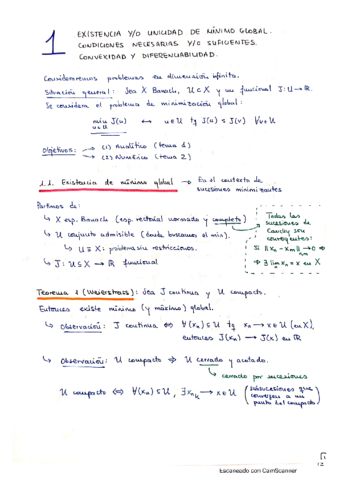 1
EXISTENCIA Y/O UNICIDAD DE MÍNIMO GLOBAL.
CONDICIONES NECESARIAS Y/O SUFICIENTES.
CONVEXIDAD Y DIFERENCIABILIDAD.
Consideraremos problemas en dimensión infinita.
Situación general: Sea X Banach, U ⊂ X y un funcional J: U → ℝ.
Se considera el problema de minimización global:
min J(u) ↔ u ∈ U tq J(u) ≤ J(v) ∀v ∈ U
u∈U
Objetivos: → (1) Analítico (tema 1)
→ (2) Numérico (tema 2)
1.1. Existencia de mínimo global → En el contexto de
sucesiones minimizantes
Partimos de:
↳ X esp. Banach (esp. vectorial normado y completo)
↳ U conjunto admisible (donde buscamos el mín).
↳ U ≡ X: problema sin restricciones.
↳ J: U ⊆ X → ℝ funcional
Todas las
sucesiones de
Cauchy son
convergentes:
Si ‖xn - xm‖ → 0 ⇒
n,m
⇒ ∃ lim xn = x en X
Teorema 1 (Weierstrass): Sea J continua y U compacto.
Entonces existe mínimo (y máximo) global.
↳ Observación: J continua ⇔ ∀(xn) ⊆ U tq xn → x ∈ U (en X),
entonces J(xn) → J(x) en ℝ
↳ Observación: U compacto ⇒ U cerrado y acotado.
↳ cerrado por sucesiones
U compacto ⇔ ∀(xn) ⊆ U, ∃ xnk → x ∈ U (subsucesiones que
convergen a un
punto del compacto)
Escaneado con CamScanner